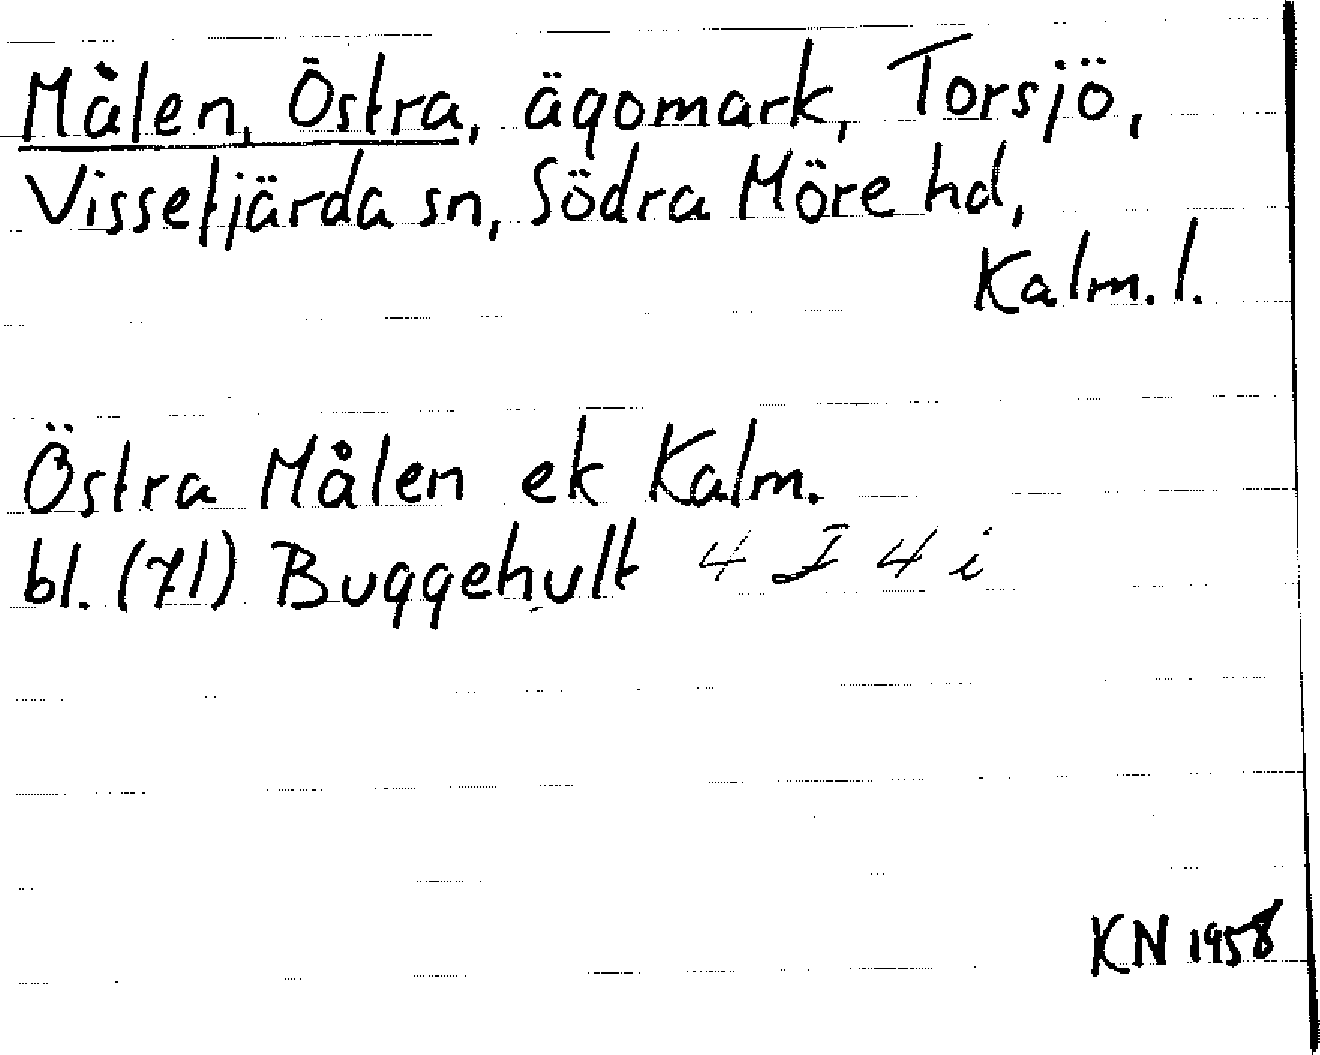 Målen, Östra, ägomark, Torsjö,
Vissefjärda sn, Södra Möre hd,
Kalm. l.
Östra Målen ek Kalm.
bl. (71) Buggehult 4 I 4 i
KN 1958